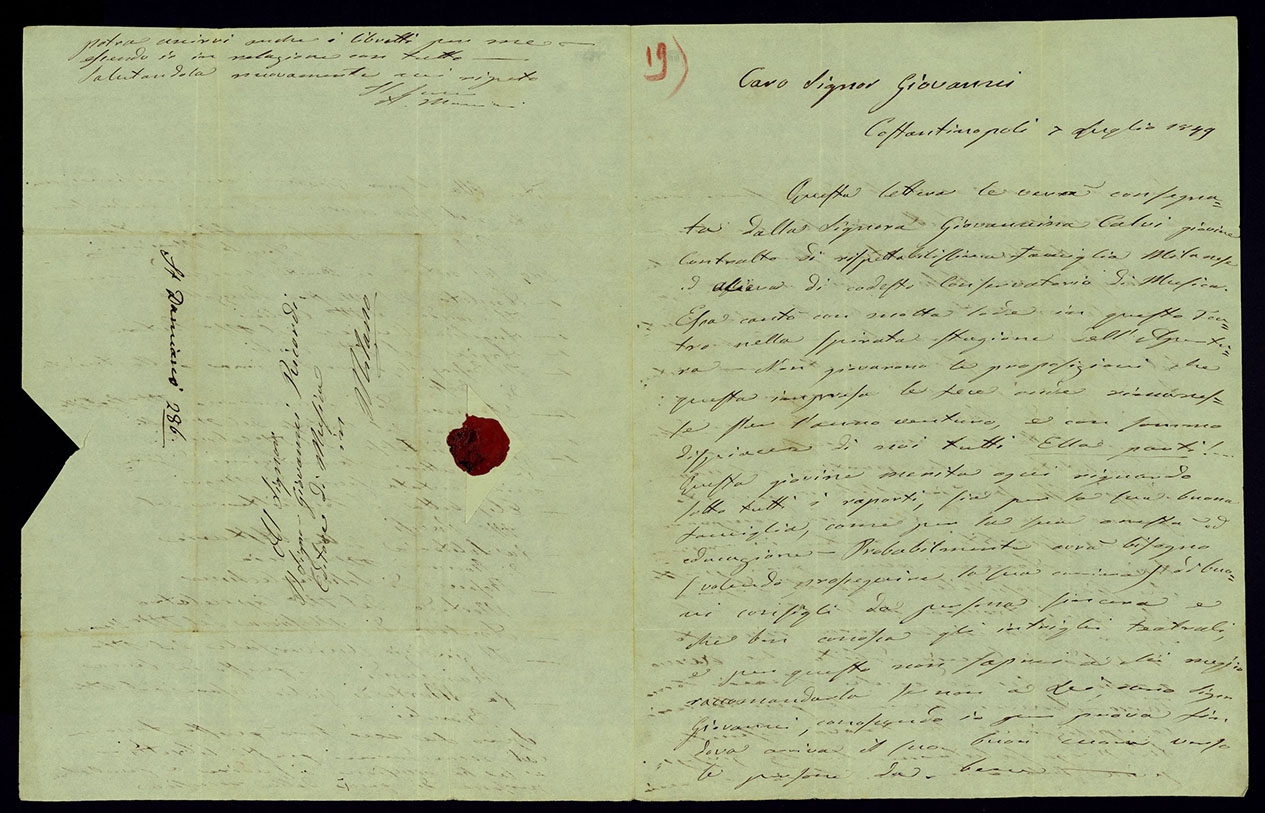 potrà unirvi anche i libretti per me
essendo io in relazione con tutto
salutandola nuovamente mi ripeto
19)
Caro Signor Giovanni
Costantinopoli 7 Luglio 1849
Questa lettera le verrà consegna-
ta dalla Signora Giovannina Calvi giovine
Contralto di rispettabilissima famiglia Milanese
ed allieva di codesto Conservatorio di Musica.
Essa cantò con molta lode in questo Tea-
tro nella spirata stagione dell'Apertu-
ra — Non giovarono le proposizioni che
questa impresa le fece onde rimanes-
se per l'anno venturo, e con sommo
dispiacere di noi tutti Ella partì! —
Questa giovine merita ogni riguardo
sotto tutti i raporti, sia per la sua buona
famiglia, come per la sua onesta ed
educazione — Probabilmente avrà bisogno
(volendo proseguire la sua) di buo-
ni consigli da persona sincera e
che ben conosca gli intrighi teatrali
e per questo non saprei a chi meglio
raccomandarla se non a Lei, caro Signor
Giovanni, conoscendo io per prova fin
dove arriva il suo buon cuore verso
le persone da bene —
Al Signor
Signor Giovanni Ricordi
Editore di Musica
in
Milano
St Damiano 286